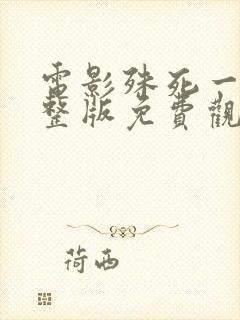 電影殊死一
整版免費觀
荷西